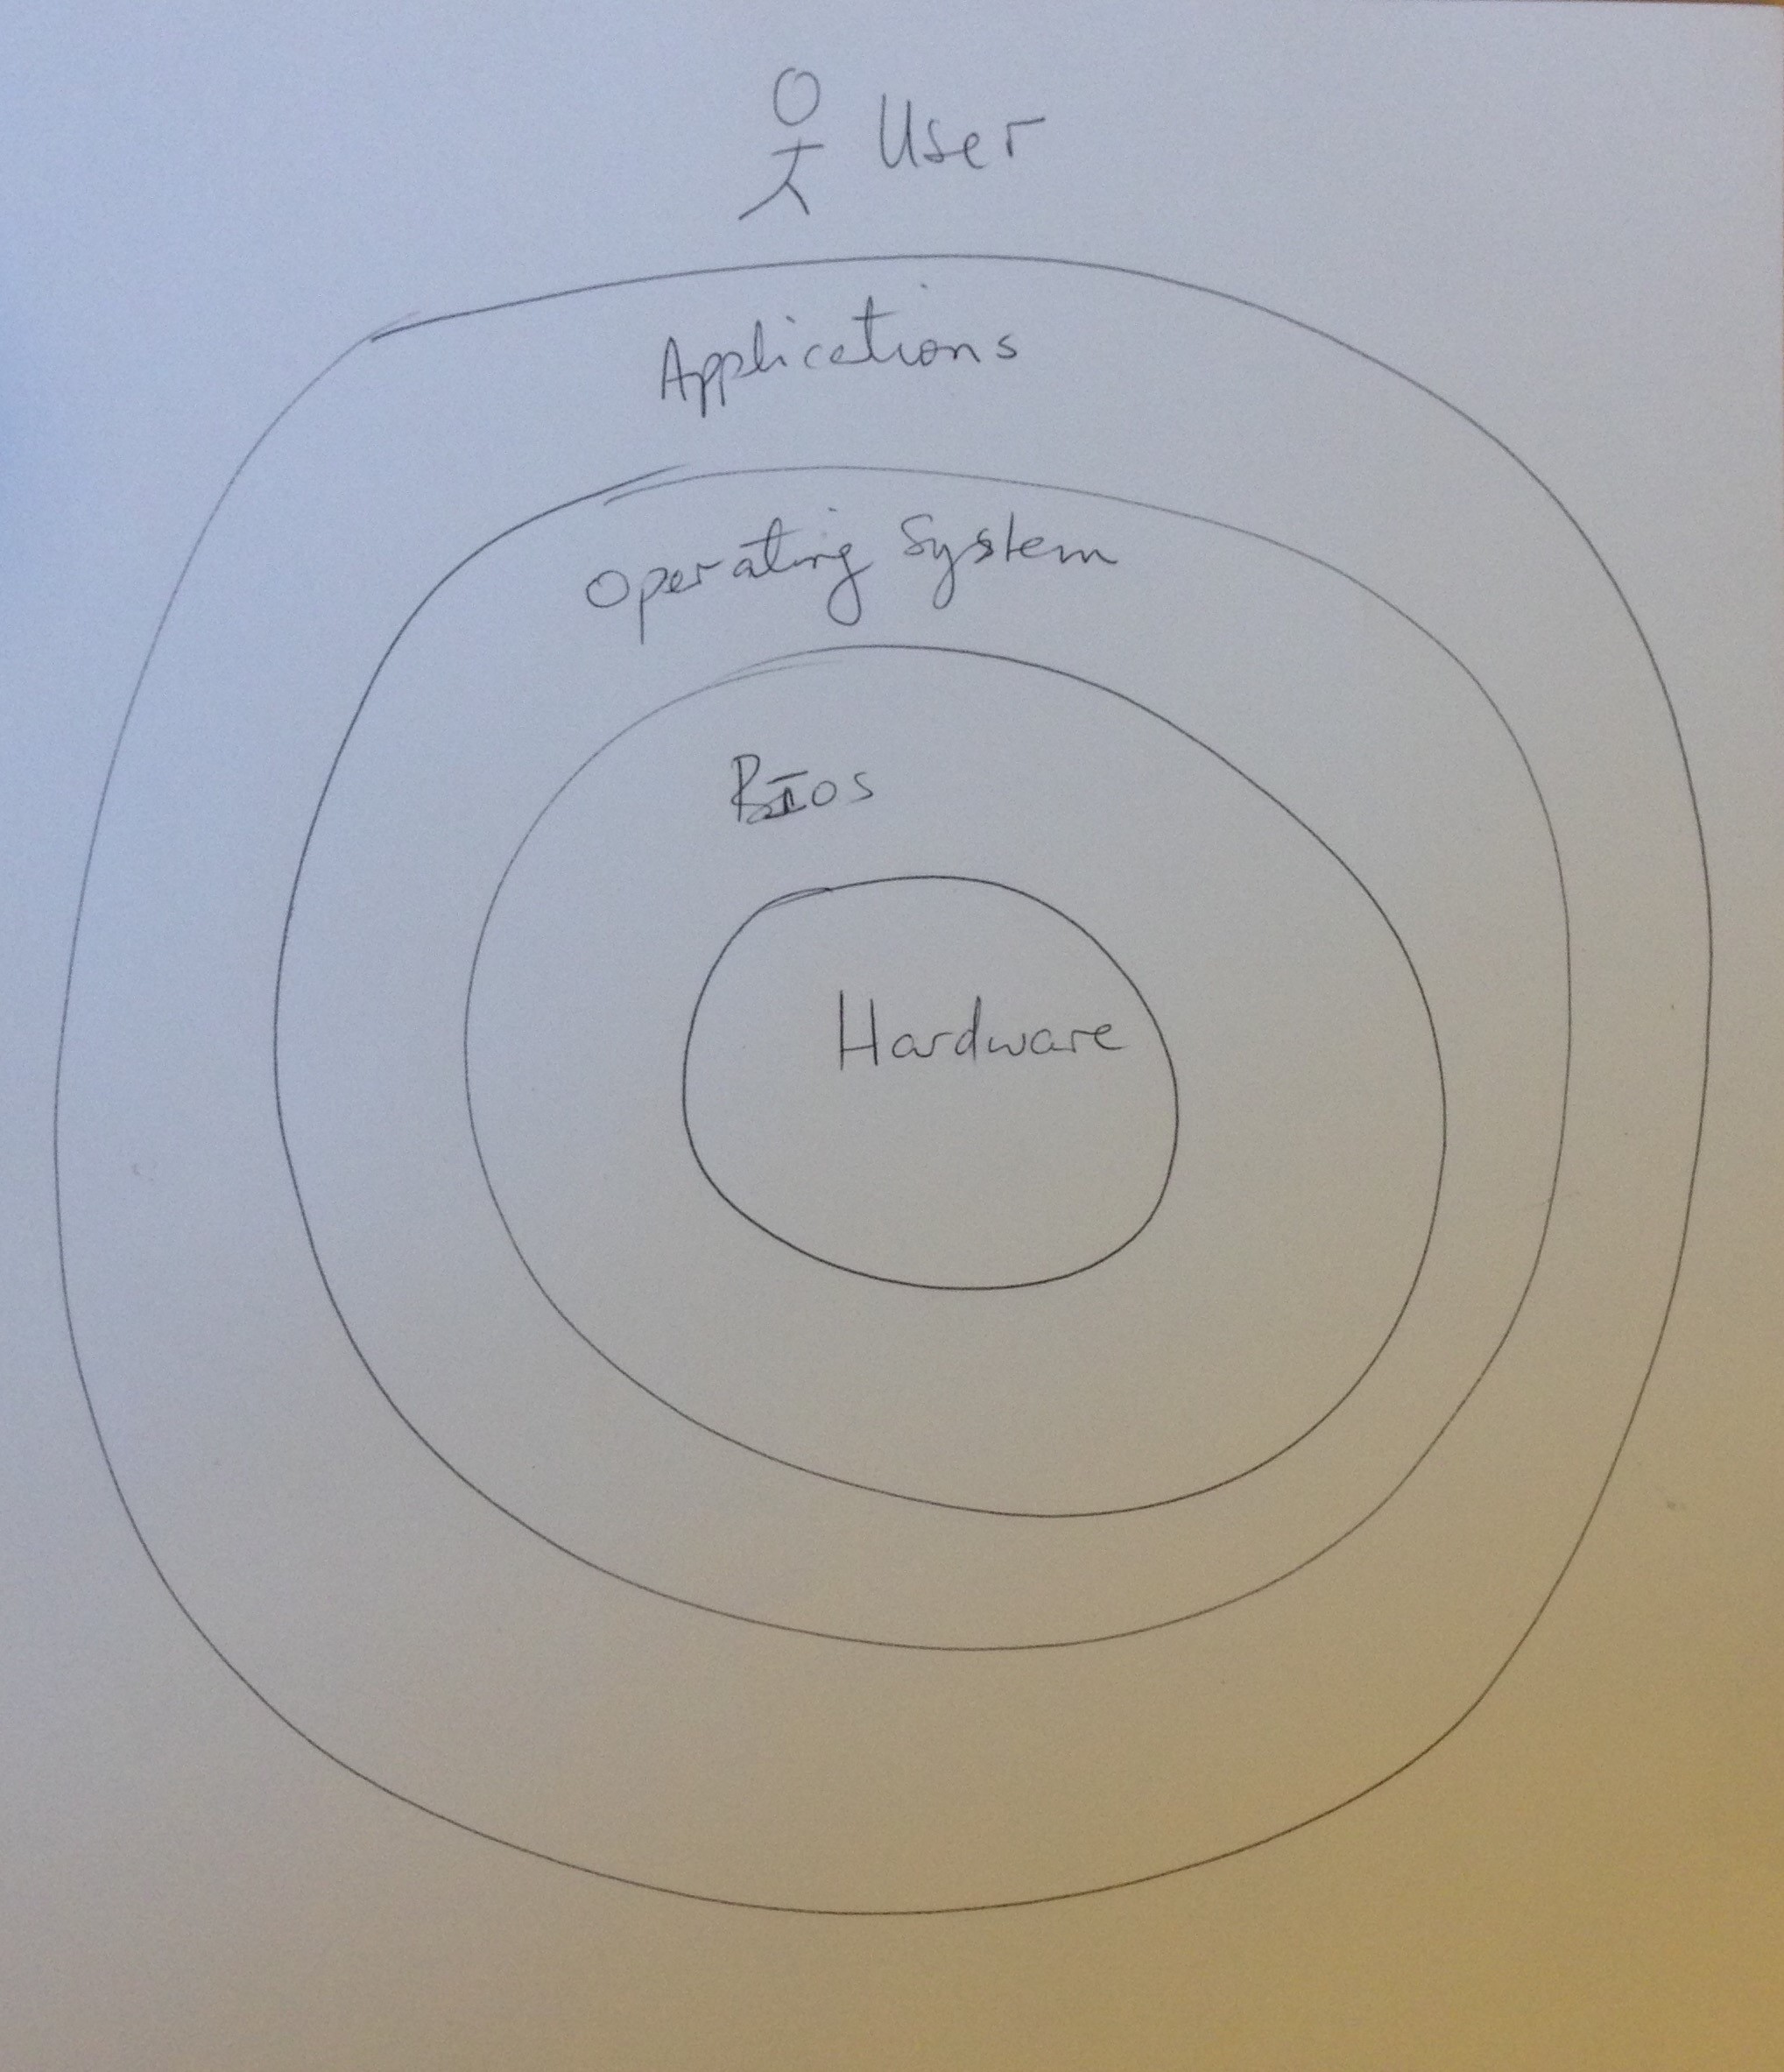 User
Applications
Operating System
BIos
Hardware